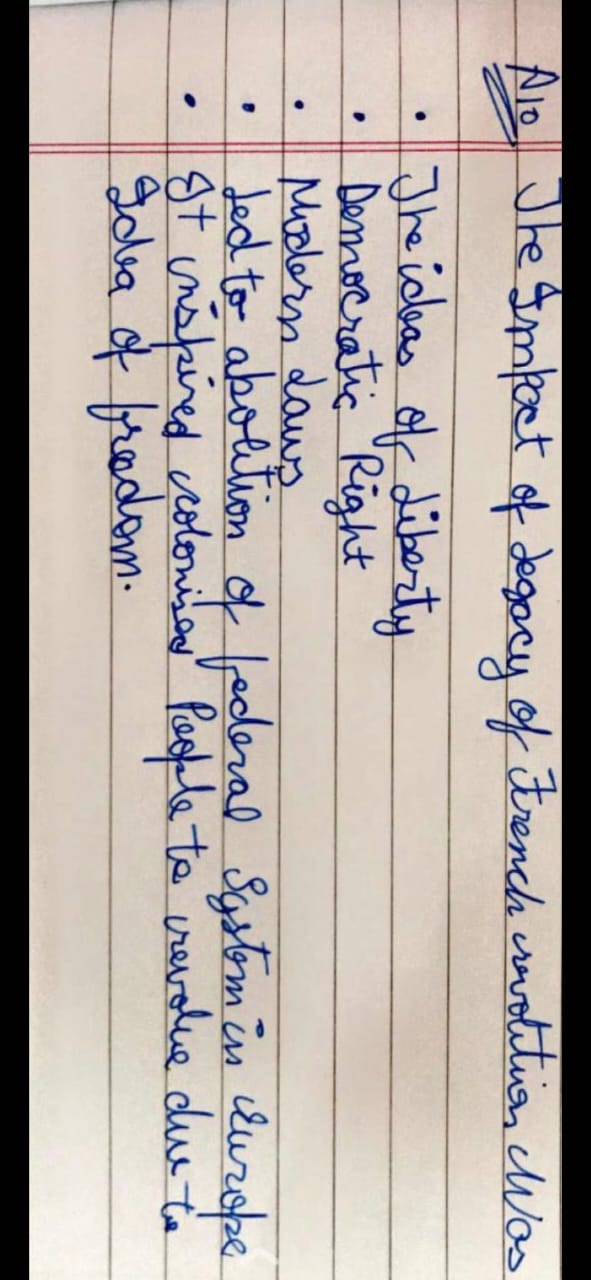 A10 The Impact of Legacy of French revolition Was
• The ideas of Liberty
• Democratic Right
• Modern Laws
• Led to abolition of federal System in Europe
• It inspired colonised People to revolue due to
Idea of fredom.